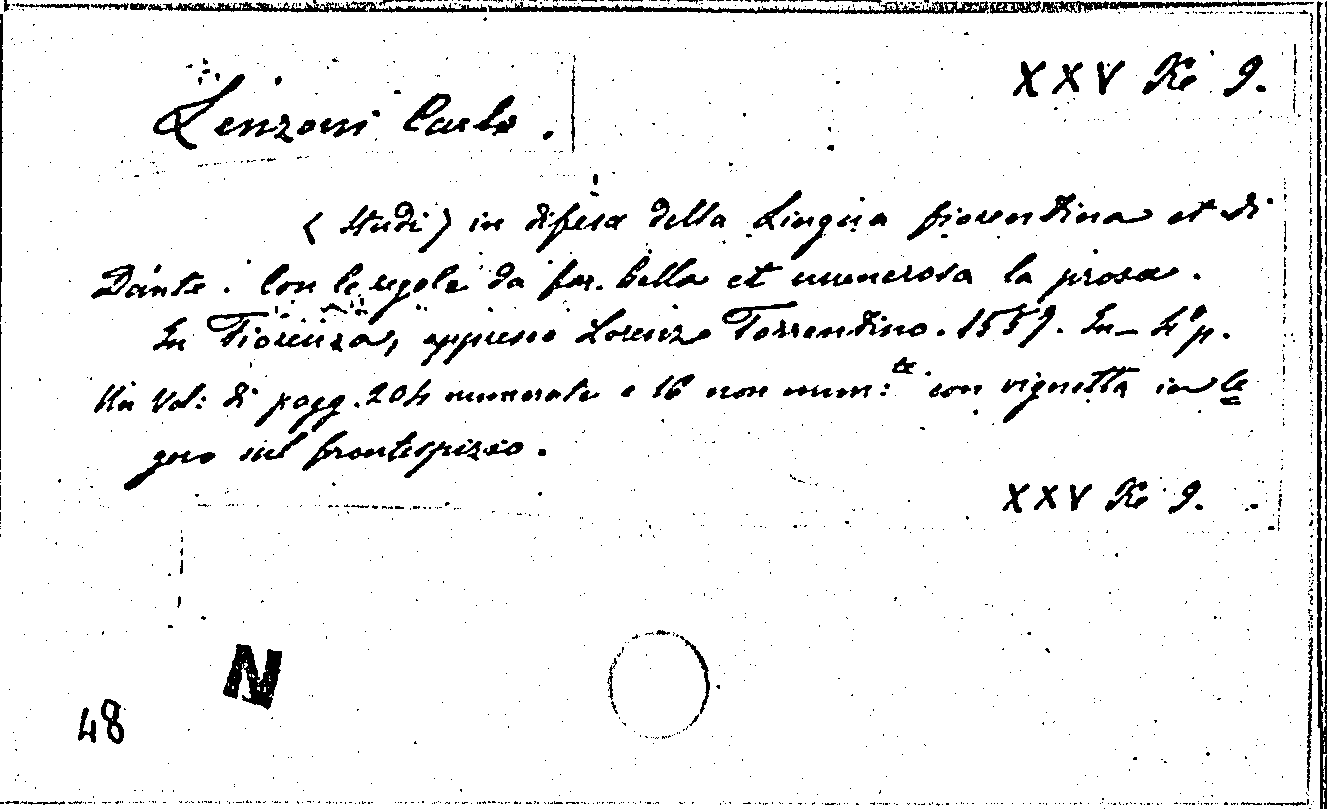 XXV Ke 9.
Lenzoni Carlo.
(Studi) in difesa della Lingua fiorentina et di
Dante. Con le regole da far bella et numerosa la prosa.
In Fiorenza, appresso Lorenzo Torrentino. 1557. In-4º p.
Un Vol: di pagg. 204 numerate e 16 non num:te con vignetta in le
gno sul frontespizio.
XXV Ke 9.
N
48